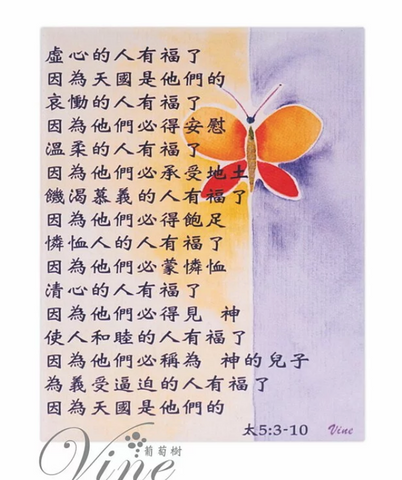 虛心的人有福了
因為天國是他們的
哀慟的人有福了
因為他們必得安慰
溫柔的人有福了
因為他們必承受地土
饑渴慕義的人有福了
因為他們必得飽足
憐恤人的人有福了
因為他們必蒙憐恤
清心的人有福了
因為他們必得見 神
使人和睦的人有福了
因為他們必稱為 神的兒子
為義受逼迫的人有福了
因為天國是他們的
太5:3-10 Vine
葡萄樹
Vine